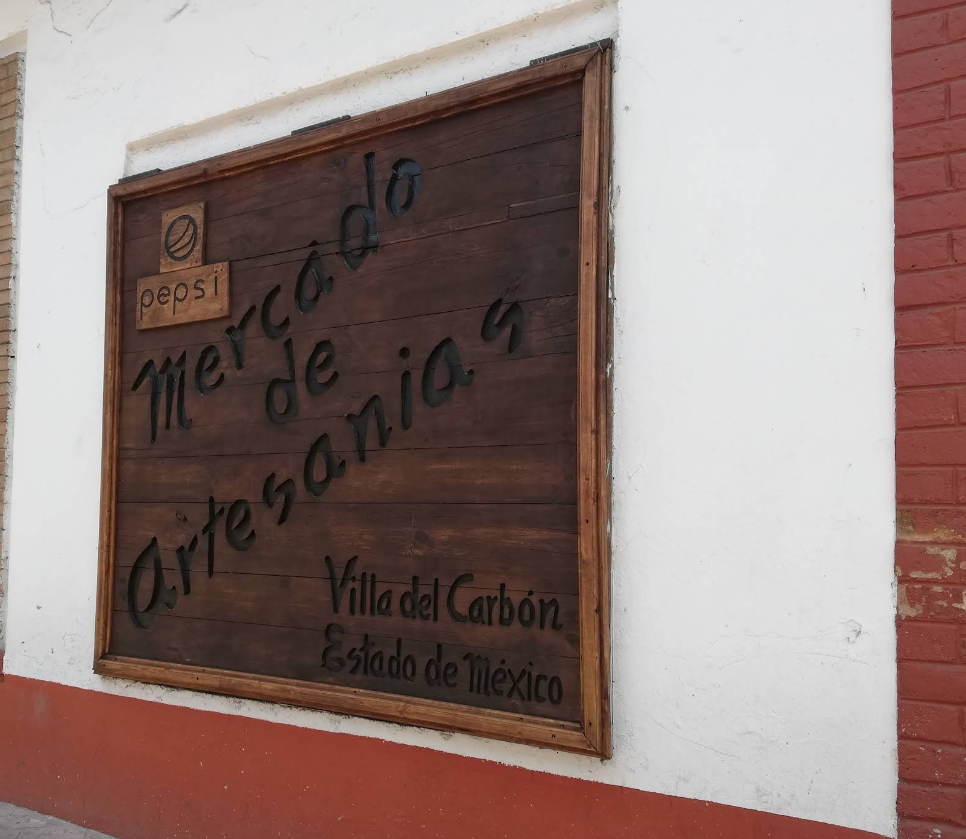 pepsi
Mercado
de
Artesanias
Villa del Carbón
Estado de México